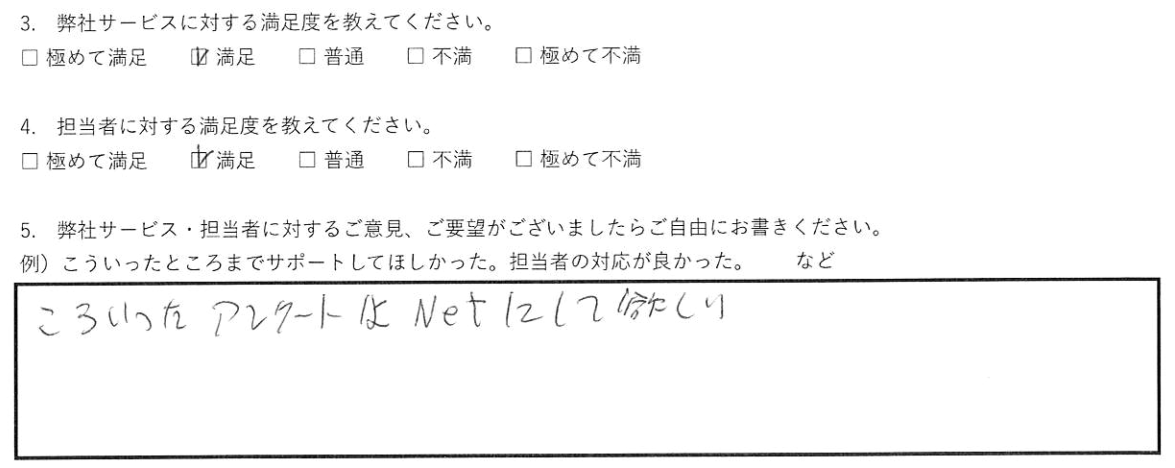 3. 弊社サービスに対する満足度を教えてください。
□ 極めて満足 ☑ 満足 □ 普通 □ 不満 □ 極めて不満
4. 担当者に対する満足度を教えてください。
□ 極めて満足 ☑ 満足 □ 普通 □ 不満 □ 極めて不満
5. 弊社サービス・担当者に対するご意見、ご要望がございましたらご自由にお書きください。
例）こういったところまでサポートしてほしかった。担当者の対応が良かった。 など
こういったアンケートはNetにして欲しい